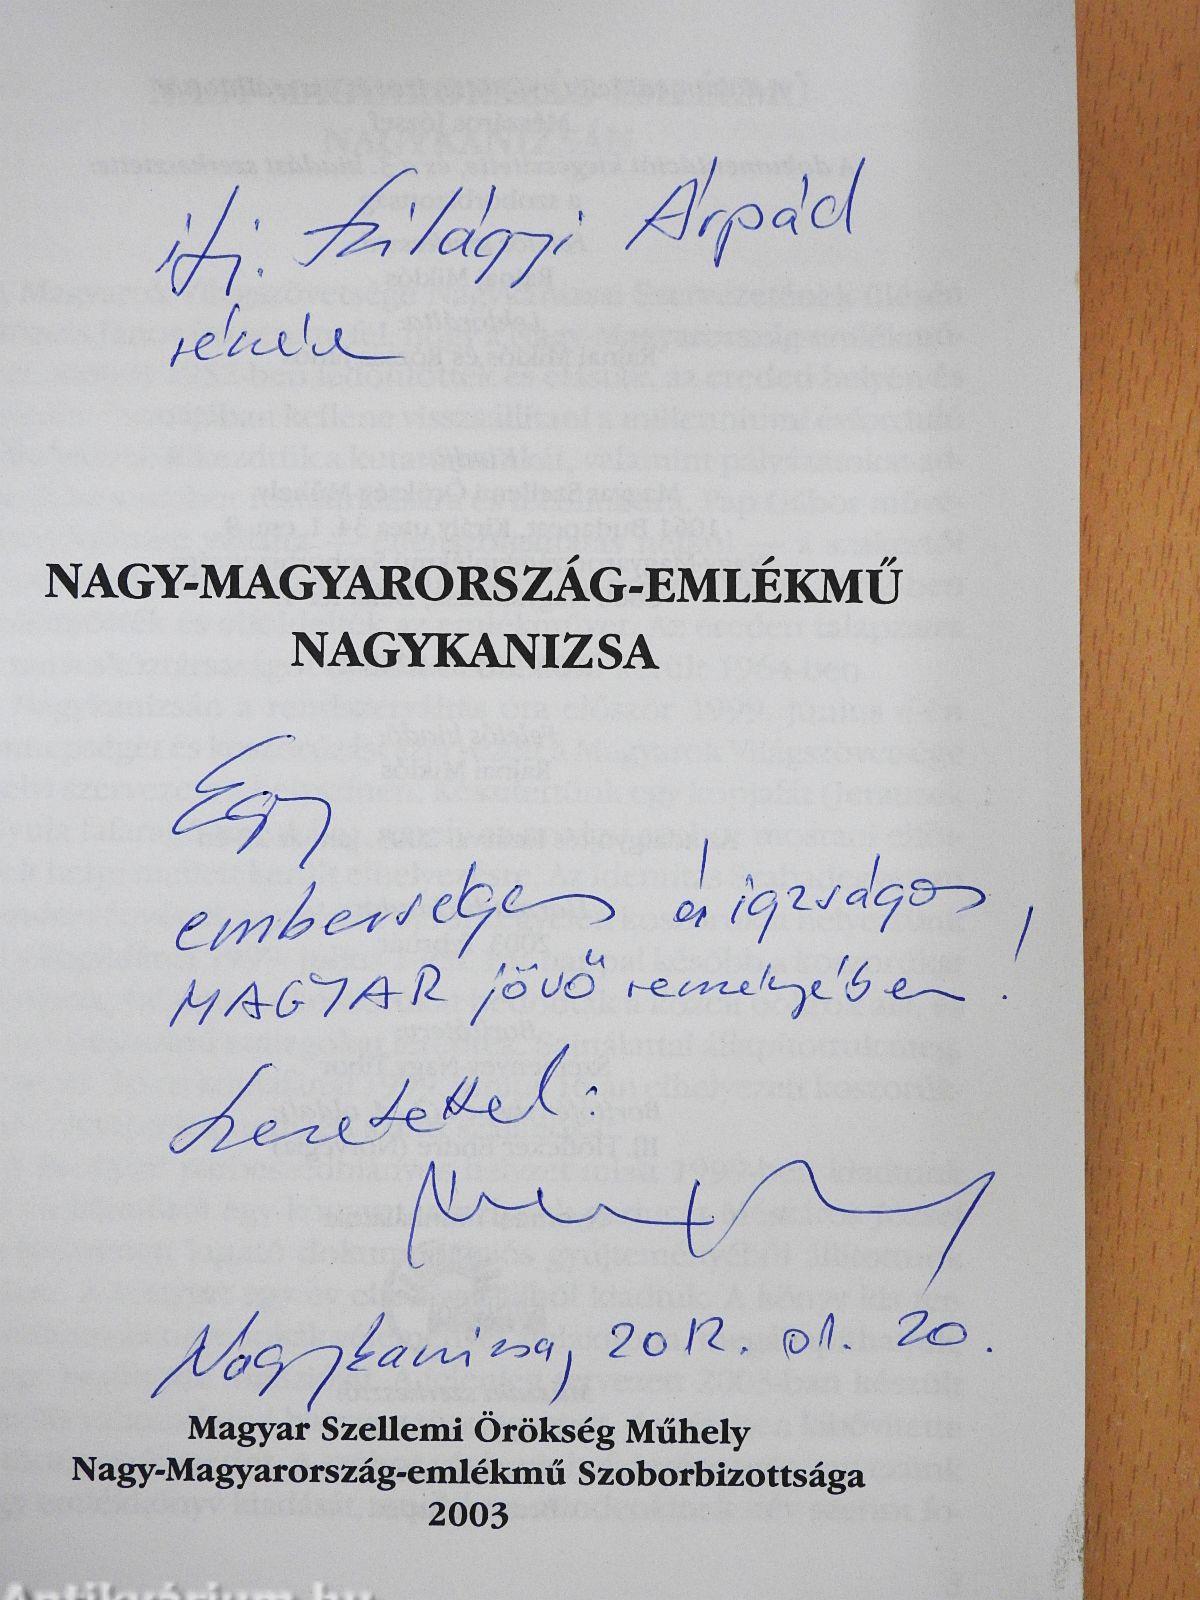 ifj. Szilágyi Árpád
részére
NAGY-MAGYARORSZÁG-EMLÉKMŰ
NAGYKANIZSA
Egy
emberséges és igazságos
MAGYAR jövő reményében!
Szeretettel:
Nagykanizsa, 2012. 01. 20.
Magyar Szellemi Örökség Műhely
Nagy-Magyarország-emlékmű Szoborbizottsága
2003
Antikvárium.hu